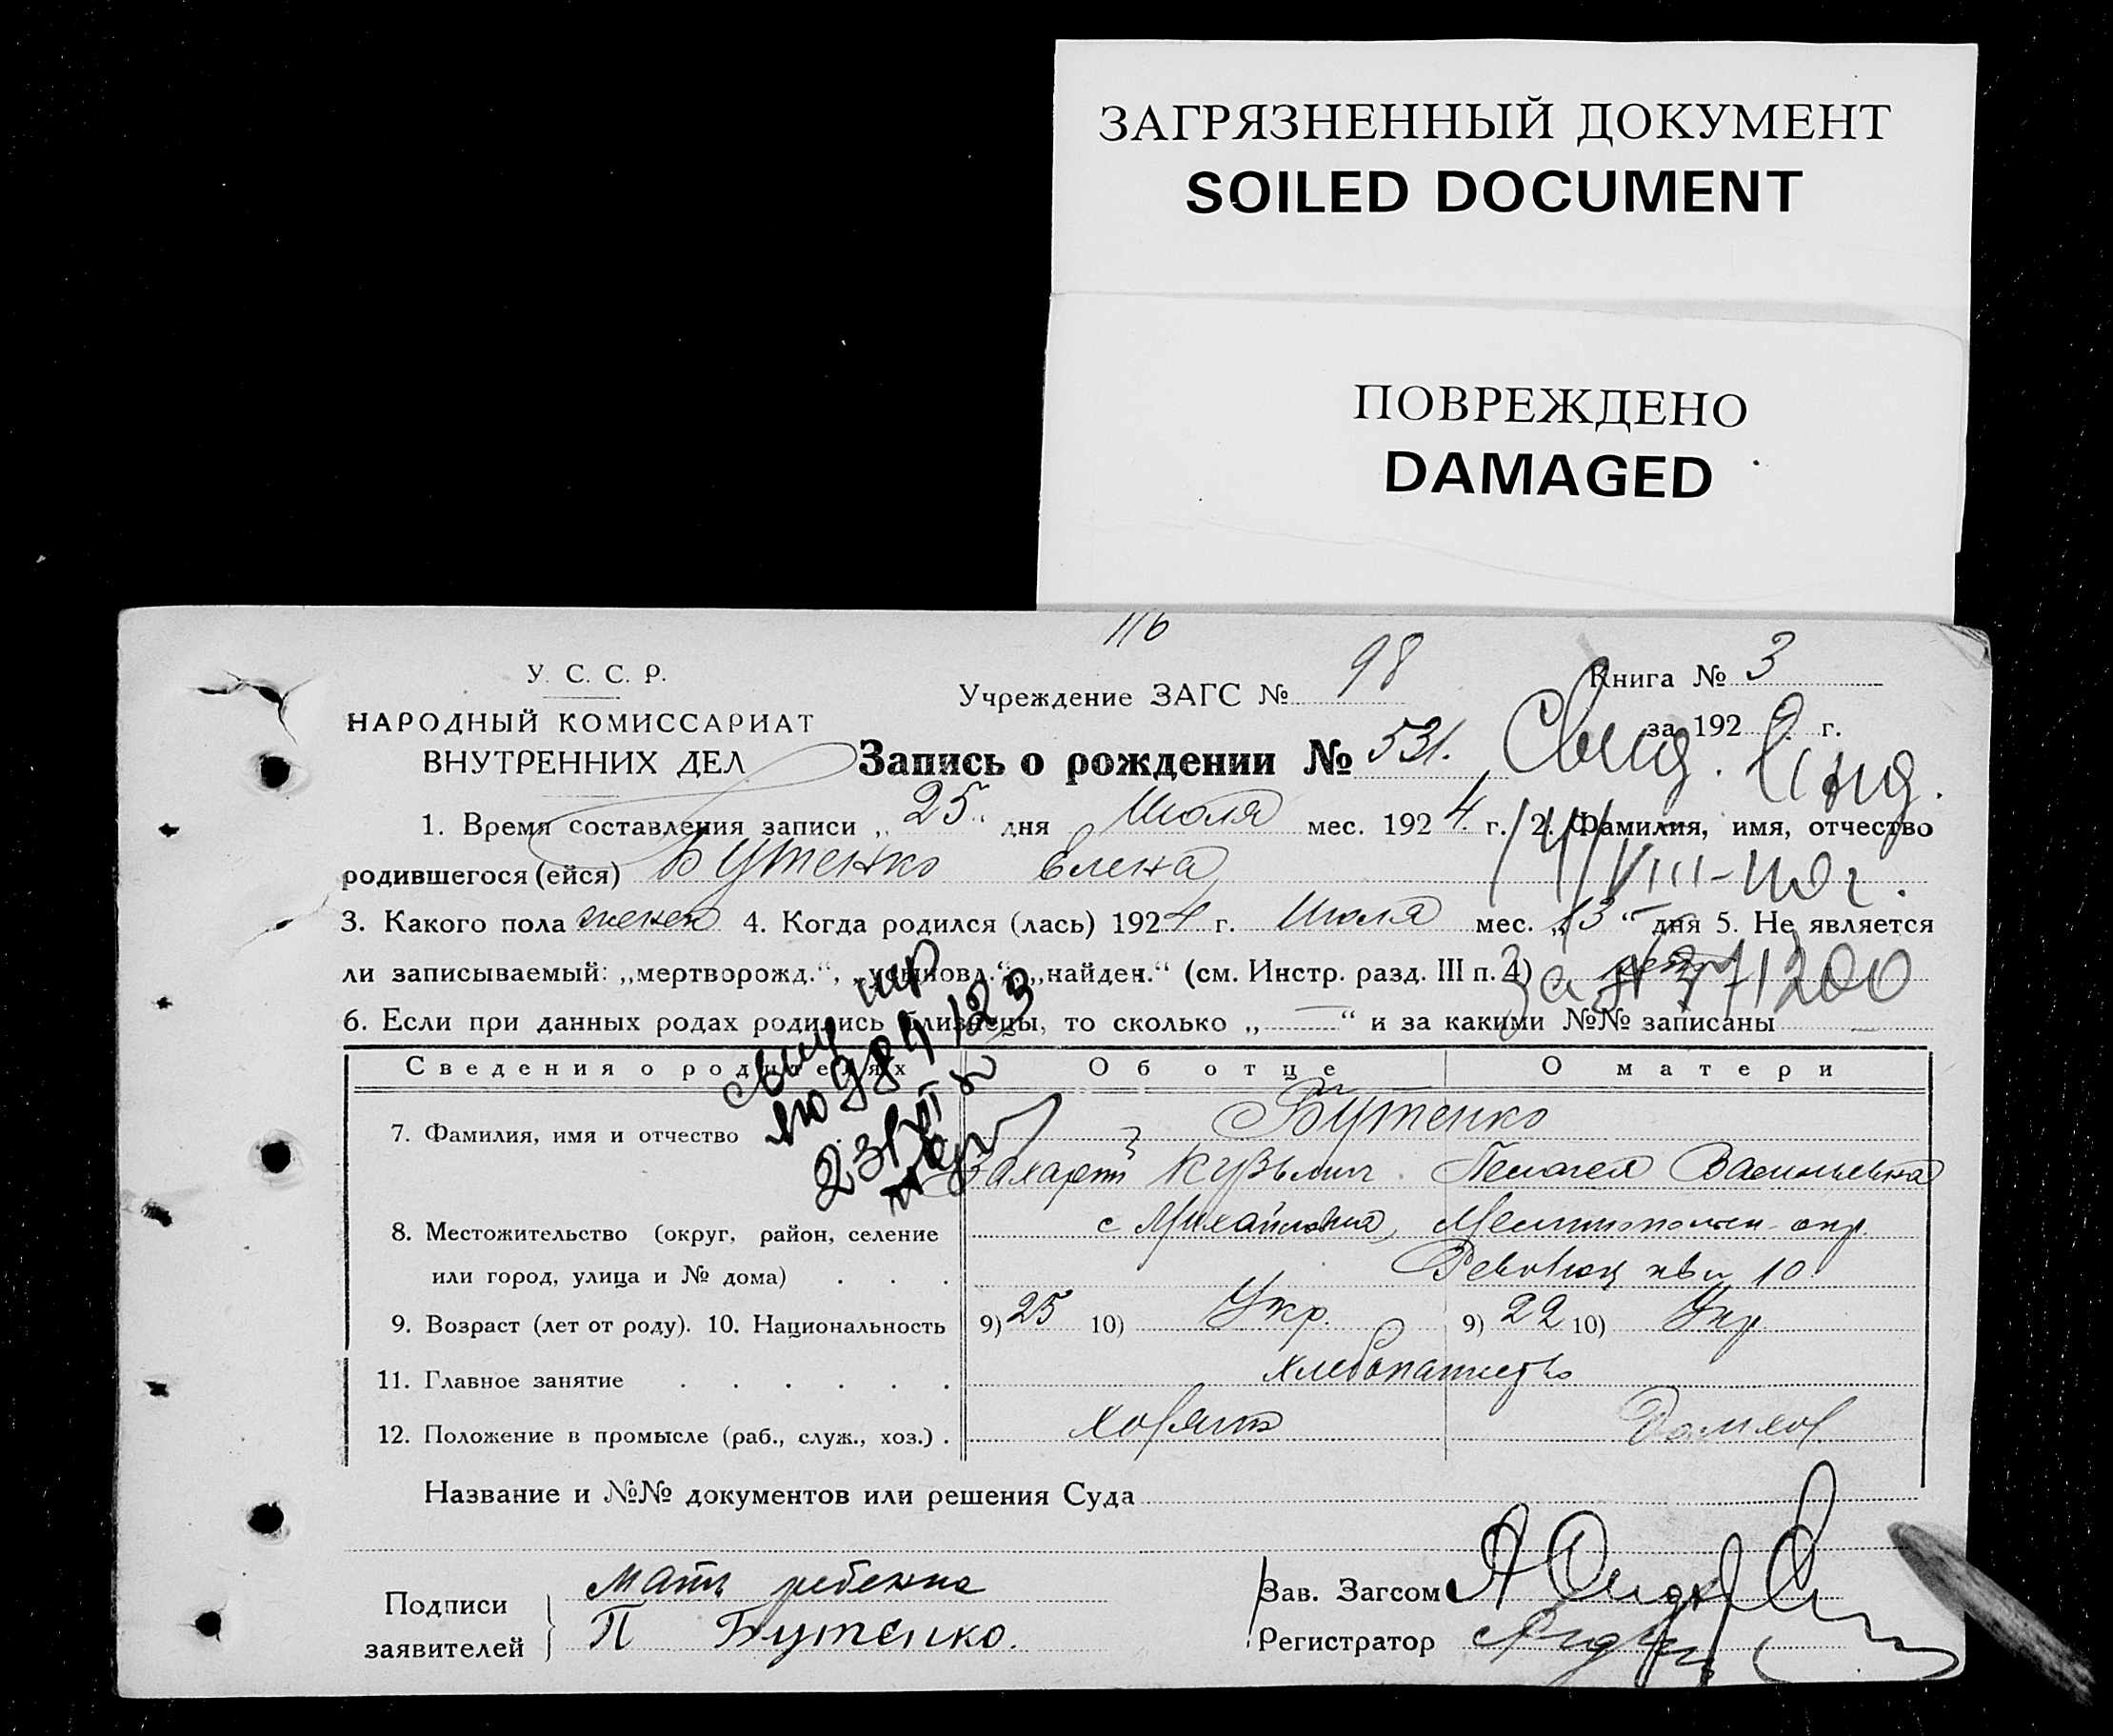 ЗАГРЯЗНЕННЫЙ ДОКУМЕНТ
SOILED DOCUMENT
ПОВРЕЖДЕНО
DAMAGED
116
У. С. С. Р.
НАРОДНЫЙ КОМИССАРИАТ
ВНУТРЕННИХ ДЕЛ
Учреждение ЗАГС № 98
Книга № 3
за 192 г.
Запись о рождении № 531.
1. Время составления записи „25“ дня Июля мес. 1924 г. 2. Фамилия, имя, отчество
родившегося (ейся) Бутенко Елена
3. Какого пола женск 4. Когда родился (лась) 1924 г. Июля мес. „13“ дня 5. Не является
ли записываемый: „мертворожд.“, „усыновл.“, „найден.“ (см. Инстр. разд. III п. 4)
6. Если при данных родах родились близнецы, то сколько „—“ и за какими №№ записаны —
Сведения о родителях Об отце О матери
7. Фамилия, имя и отчество Бутенко
Захарий Кузьмич Пелагея Васильевна
8. Местожительство (округ, район, селение с Михайловка, Мелитопольск окр.
или город, улица и № дома) . . . 10
9. Возраст (лет от роду). 10. Национальность 9) 25 10) Укр. 9) 22 10) Укр
11. Главное занятие . . . . . . хлебопашество
12. Положение в промысле (раб., служ., хоз.) . хозяин Домхоз
Название и №№ документов или решения Суда
Подписи заявителей
Мать ребенка
П Бутенко.
Зав. Загсом
Регистратор